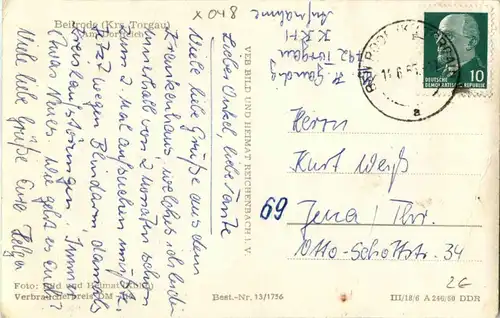 Beilrode (Krs. Torgau)
Am Dorfteich
x 048
Liebe Onkel, liebe Tante
Viele liebe Grüße aus dem
Krankenhaus, welches ich leider
innerhalb von 2 Monaten schon
zum 2. Mal aufsuchen mußte.
Jetzt wegen Blinddarm damals
Kreislaufstörungen. Immer
etwas Neues. Wie geht es euch?
Viele liebe Grüße Eure Helga
Foto: Bild und Heimat
Verbraucherpreis DM
VEB BILD UND HEIMAT REICHENBACH I. V.
Best.-Nr. 13/1756
42 Torgau
KKH
Aufnahme
a
DEUTSCHE
DEMOKRATISCHE REPUBLIK
10
Herrn
Kurt Weiß
69 Jena / Thr.
Otto-Schott-str. 34
26
III/18/6 A 240/60 DDR